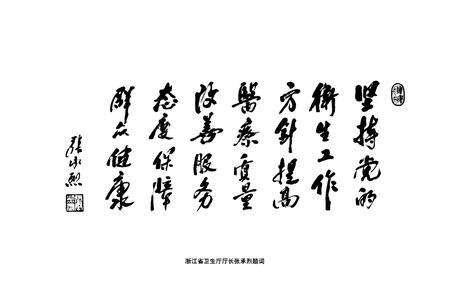 坚持党的
衛生工作
方針提高
醫療質量
改善服务
态度保障
群众健康
張承烈
浙江省卫生厅厅长张承烈题词